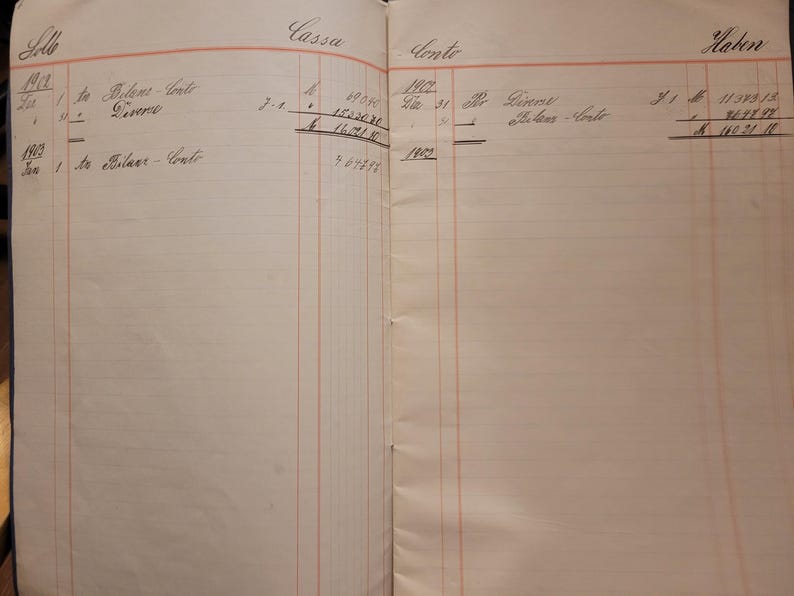 Soll Cassa Conto Haben
1902
Dez 1 An Bilanz - Conto M 690 40
" 31 " Diverse J. 1. " 15330 70
M 16021 10
1903
Jan 1 An Bilanz - Conto 4647 97
1902
Dez 31 Per Diverse J 1 M 11373 13
" 31 " Bilanz - Conto " 4647 97
M 16021 10
1903